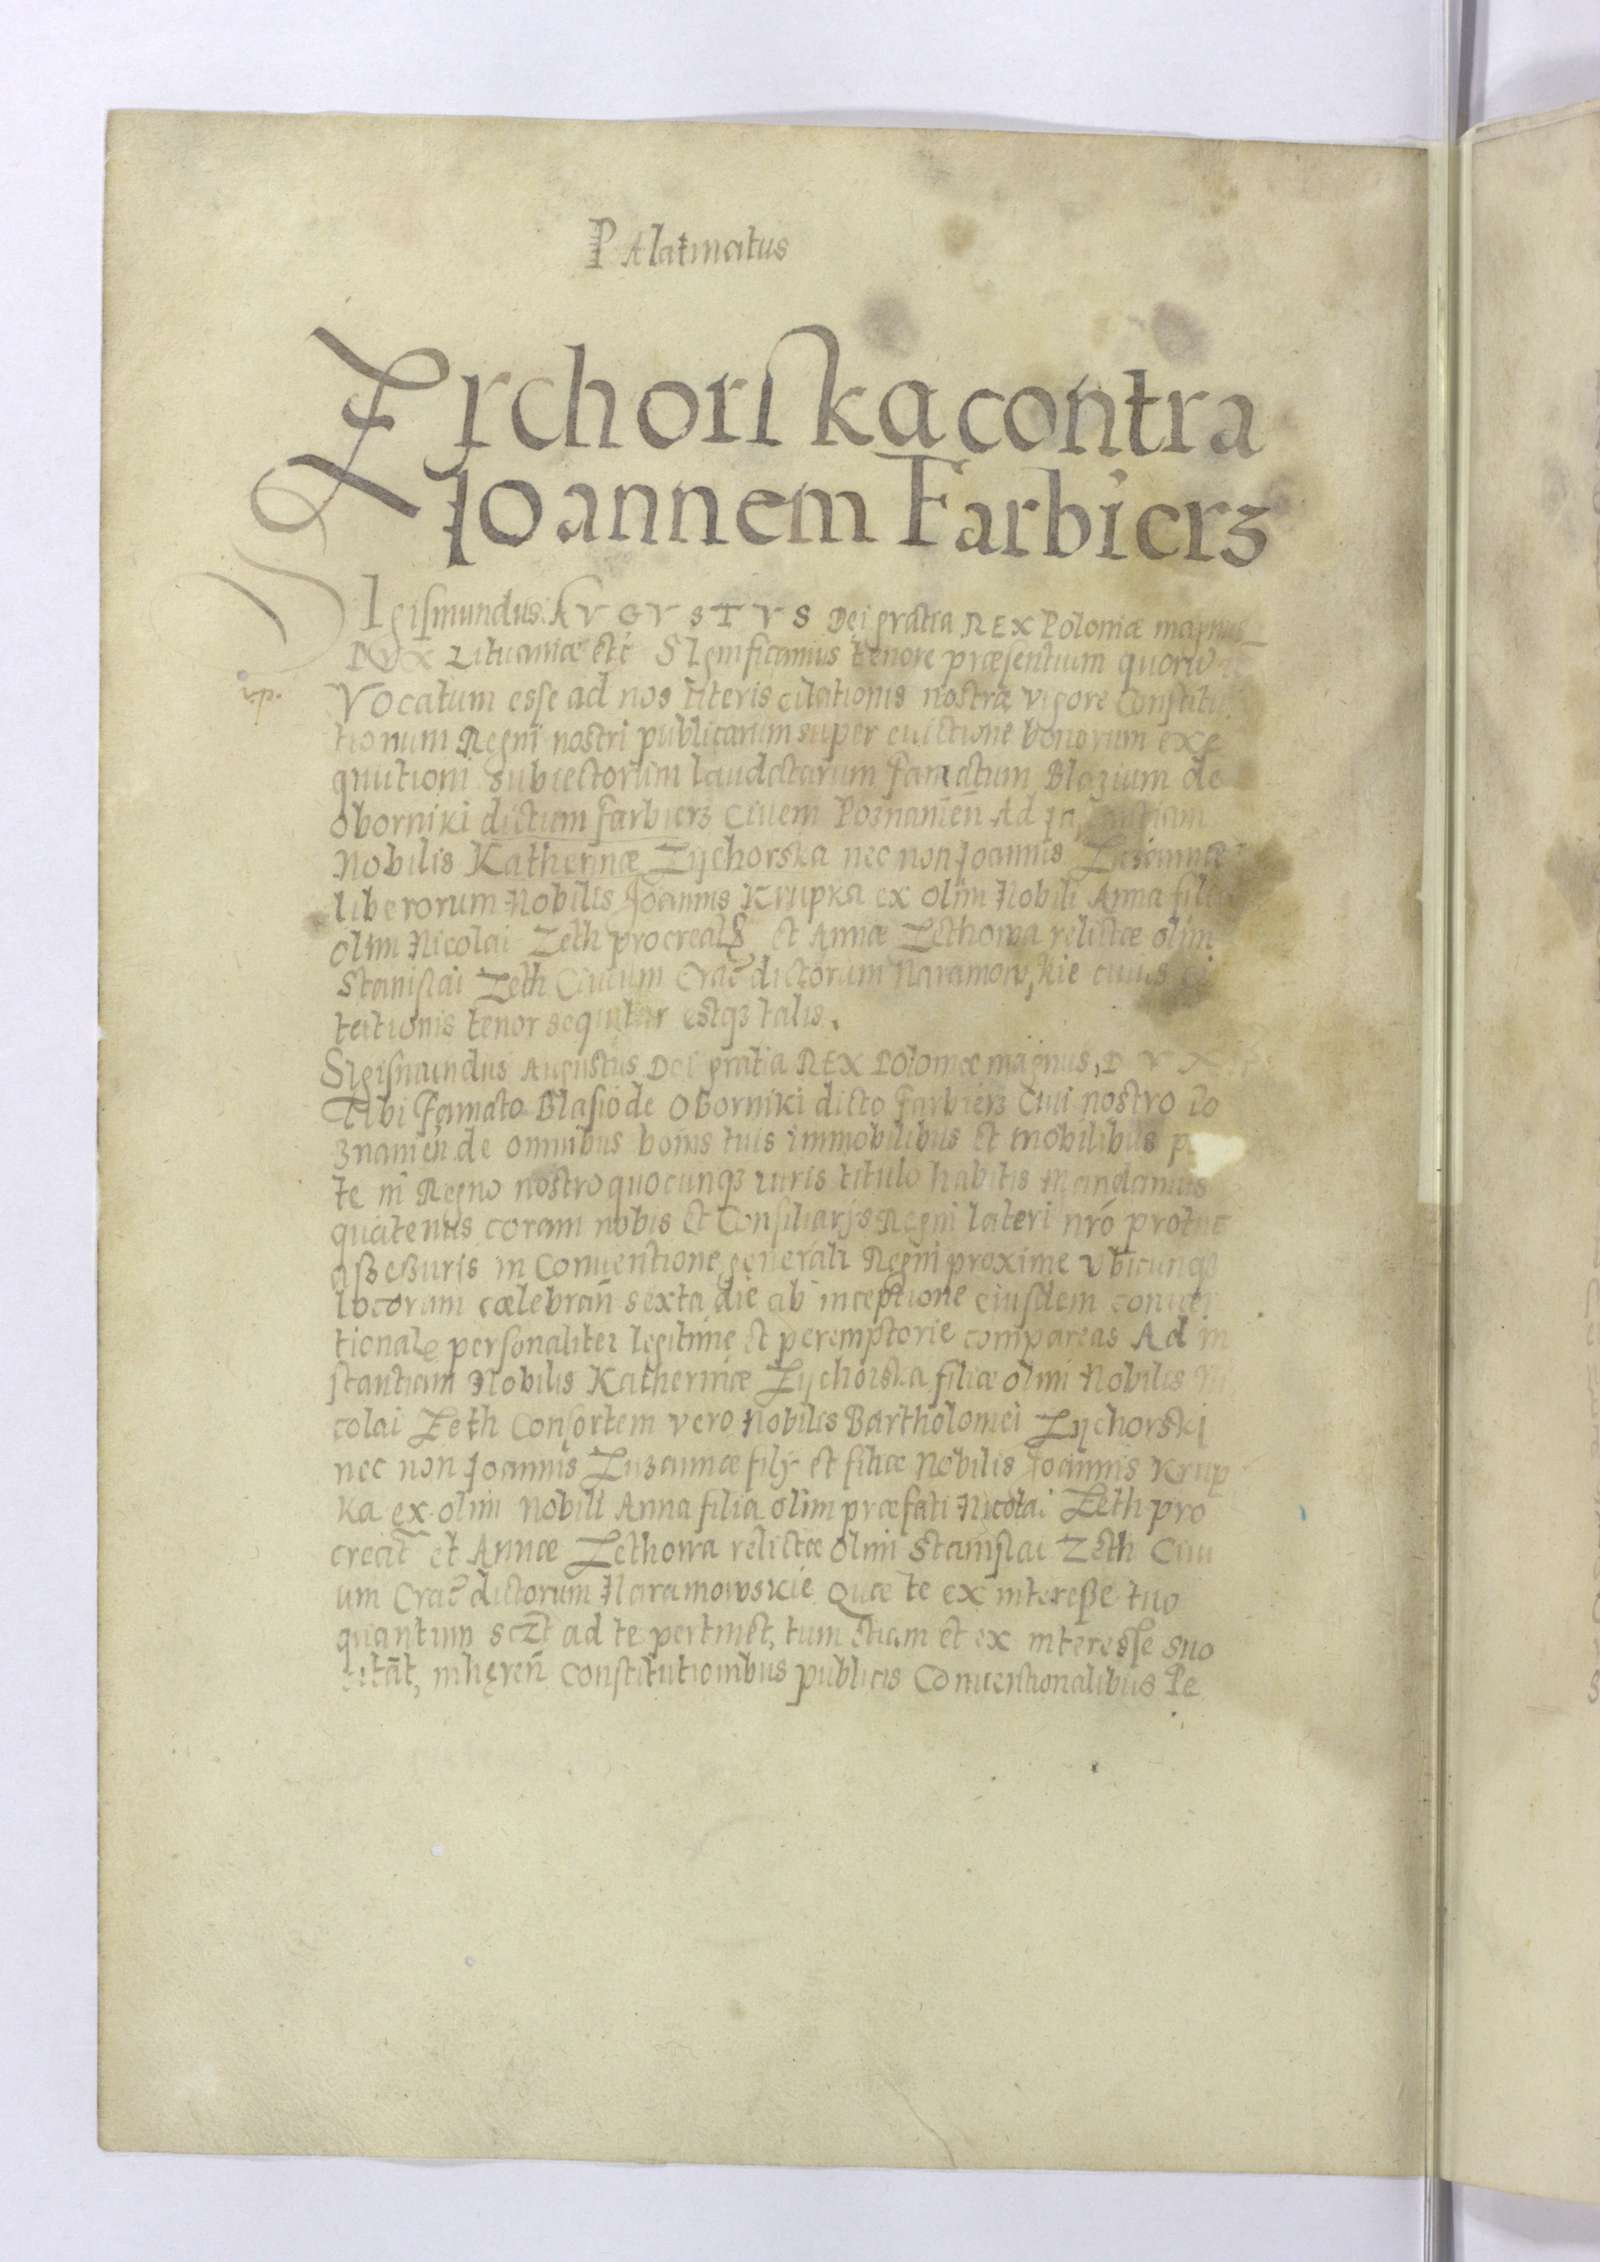 PAlatinatus
Zrchorska contra
Joannem Farbierz
SIgismundus AVGVSTVS Dei gratia REX Poloniæ magnus
DVX Lituaniæ etc̄ SIgnificamus tenore præsentium quorū
r.p.
Vocatum esse ad nos literis citationis nostræ vigore Constitu
tionum Regni nostri publicarum super euictione bonorum exe
quutioni subiectorum laudatarum famatum Blazium de
oborniki dictum farbierz Ciuem Poznanień Ad
Nobilis Katherinæ Zychorska nec non Joannis Zuzannæ
liberorum Nobilis Joannis Krupka ex olim Nobili Anna filia
olim Nicolai Zeth procreatꝝ et Annæ Zethowa relictæ olim
Stanislai Zeth Ciuium Crac̄ dictorum Naramowskie cuius ci
tationis tenor sequitur estqꝫ talis.
SIgismundus Augustus Dei gratia REX Poloniæ magnus, DVX
Tibi Famato Blasio de Oborniki dicto farbierz Ciui nostro Po
znanień de omnibus bonis tuis immobilibus et mobilibus
te in Regno nostro quocunqꝫ iuris titulo habitis Mandamus
quatenus coram nobis et Consiliarijs Regni lateri nr̄o protunc
aßeßuris in Conuentione generali Regni proxime vbicunqꝫ
locorum cælebrań sexta die ab inceptione eiusdem conuen
tionale personaliter legitime et peremptorie compareas Ad in
stantiam Nobilis Katherinæ Zychorska filiæ olim Nobilis Ni
colai Zeth Consortem vero Nobilis Bartholomei Zychorski
nec non Joannis Zuzannæ filij et filiæ Nobilis Joannis Krup
ka ex olim Nobili Anna filia olim præfati Nicolai Zeth pro
creat̄ et Annæ Zethowa relictæ olim Stanislai Zeth Ciui
um Crac̄ dictorum Naramowskie Quæ te ex intereße tuo
quantum scz̄t ad te pertinet, tum etiam et ex interesse suo
citāt, inhęreń Constitutionibus publicis Conuentionalibus Pe